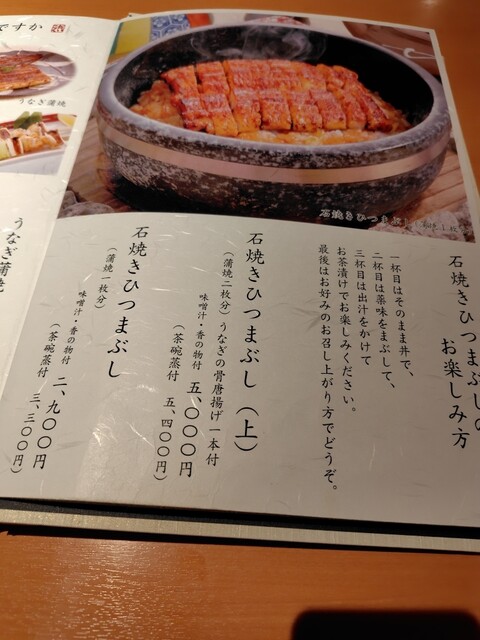 石焼きひつまぶし
石焼きひつまぶしの
お楽しみ方
一杯目はそのまま丼で、
二杯目は薬味をまぶして、
三杯目は出汁をかけて
お茶漬けでお楽しみください。
最後はお好みのお召し上がり方でどうぞ。
石焼きひつまぶし（上）
（蒲焼二枚分）うなぎの骨唐揚げ一本付
味噌汁・香の物付 五、〇〇〇円
（茶碗蒸付 五、四〇〇円）
石焼きひつまぶし
（蒲焼一枚分）
味噌汁・香の物付 二、九〇〇円
（茶碗蒸付 三、三〇〇円）
ですか
うなぎ蒲焼
うなぎ蒲焼